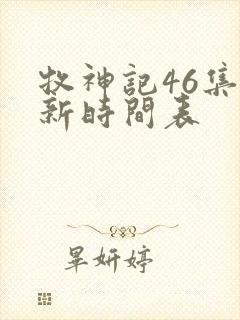 牧神記46集
新時間表
畢妍婷